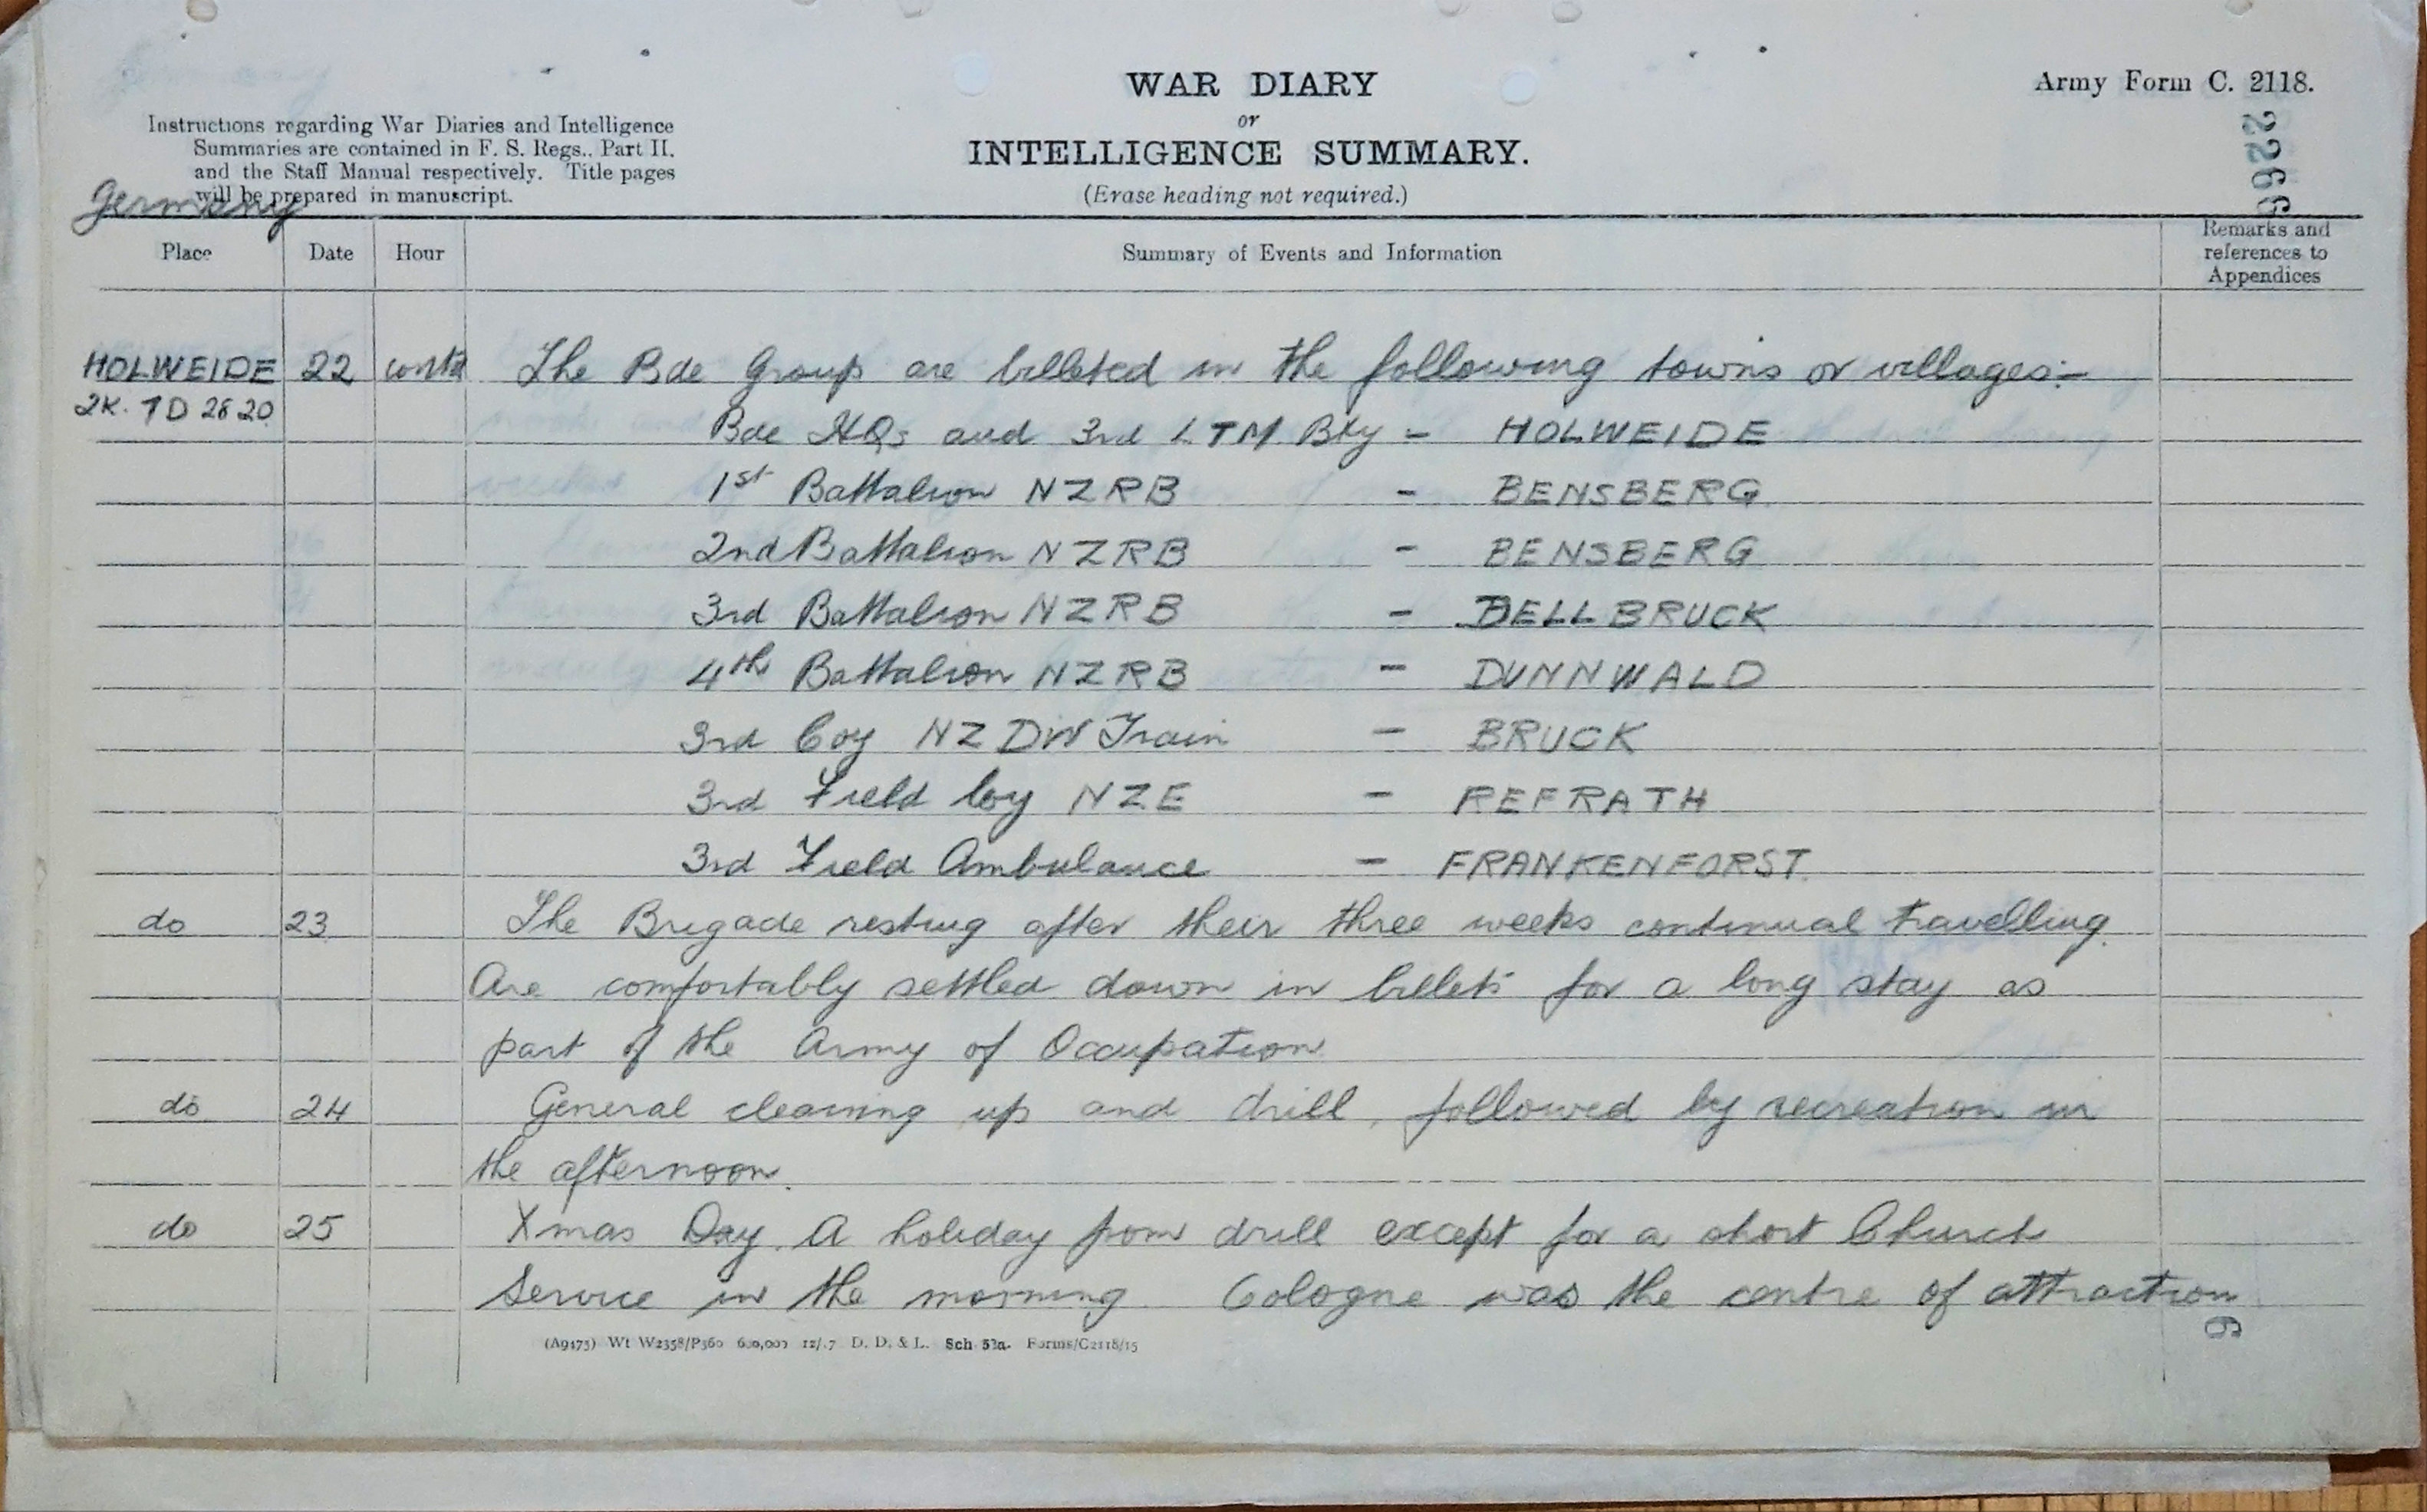 WAR DIARY
or
INTELLIGENCE SUMMARY.
(Erase heading not required.)
Army Form C. 2118.
Instructions regarding War Diaries and Intelligence
Summaries are contained in F. S. Regs., Part II.
and the Staff Manual respectively. Title pages
will be prepared in manuscript.
Germany
Place Date Hour Summary of Events and Information Remarks and
references to
Appendices
HOLWEIDE 22 contd The Bde Group are billeted in the following towns or villages:-
2K. 7D 28 20 Bde HQs and 3rd LTM Bty - HOLWEIDE
1st Battalion NZRB - BENSBERG
2nd Battalion NZRB - BENSBERG
3rd Battalion NZRB - DELLBRUCK
4th Battalion NZRB - DUNNWALD
3rd Coy NZ Div Train - BRUCK
3rd Field Coy NZE - REFRATH
3rd Field Ambulance - FRANKENFORST
do 23 The Brigade resting after their three weeks continual travelling.
Are comfortably settled down in billets for a long stay as
part of the Army of Occupation
do 24 General cleaning up and drill, followed by recreation in
the afternoon.
do 25 Xmas Day. A holiday from drill except for a short Church
Service in the morning Cologne was the centre of attraction
(A9475) Wt W2358/P360 600,000 12/.7 D. D. & L. Sch 52a. Forms/C2118/15